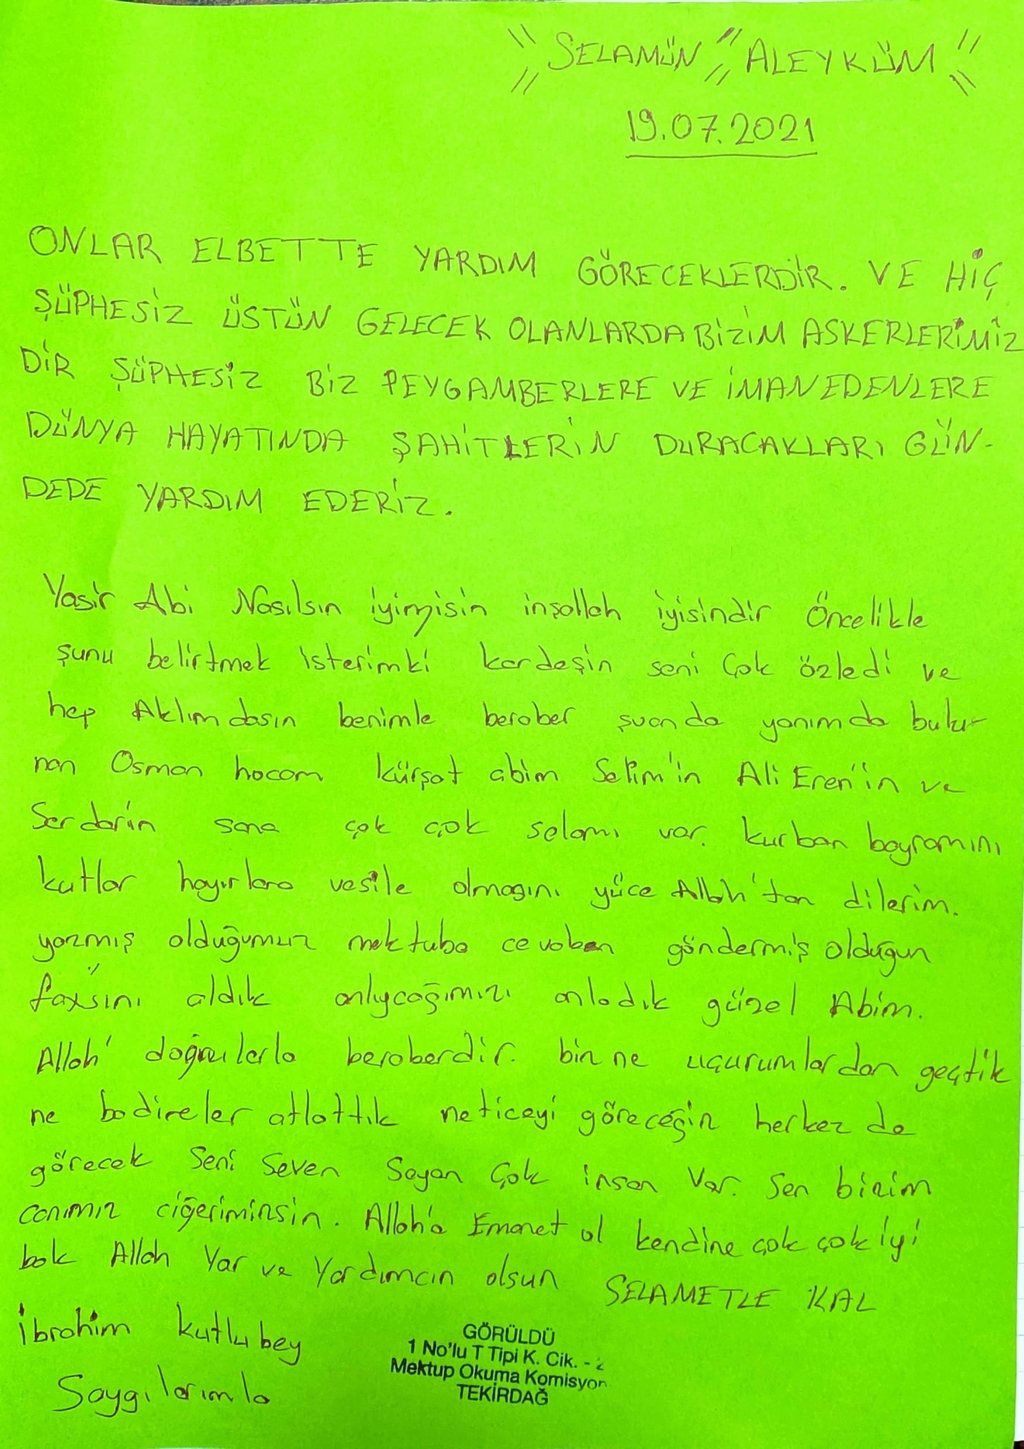 " SELAMÜN " ALEYKÜM "
19.07.2021
ONLAR ELBETTE YARDIM GÖRECEKLERDİR. VE HİÇ
ŞÜPHESİZ ÜSTÜN GELECEK OLANLARDA BİZİM ASKERLERİMİZ
DİR ŞÜPHESİZ BİZ PEYGAMBERLERE VE İMAN EDENLERE
DÜNYA HAYATINDA ŞAHİTLERİN DURACAKLARI GÜN-
DEDE YARDIM EDERİZ.
Yasir Abi Nasılsın iyimisin inşallah iyisindir Öncelikle
şunu belirtmek isterimki kardeşin seni Çok özledi ve
hep Aklımdasın benimle beraber şuanda yanımda bulu-
nan Osman hocam kürşat abim Selim'in Ali Eren'in ve
Serdarın sana çok çok selamı var. kurban bayramını
kutlar hayırlara vesile olmasını yüce Allah'tan dilerim.
yazmış olduğumuz mektuba cevaben göndermiş olduğun
faxsını aldık anlycağımızı anladık güzel Abim.
Allah' doğrularla beraberdir. biz ne uçurumlardan geçtik
ne badireler atlattık neticeyi göreceğiz herkez de
görecek Seni Seven Sayan Çok insan Var. Sen bizim
canımız ciğerimizsin. Allah'a Emanet ol kendine çok çok iyi
bak Allah Yar ve Yardımcın olsun SELAMETLE KAL
ibrahim kutlubey
Saygılarımla
GÖRÜLDÜ
1 No'lu T Tipi K. Cik. - 2
Mektup Okuma Komisyon
TEKİRDAĞ